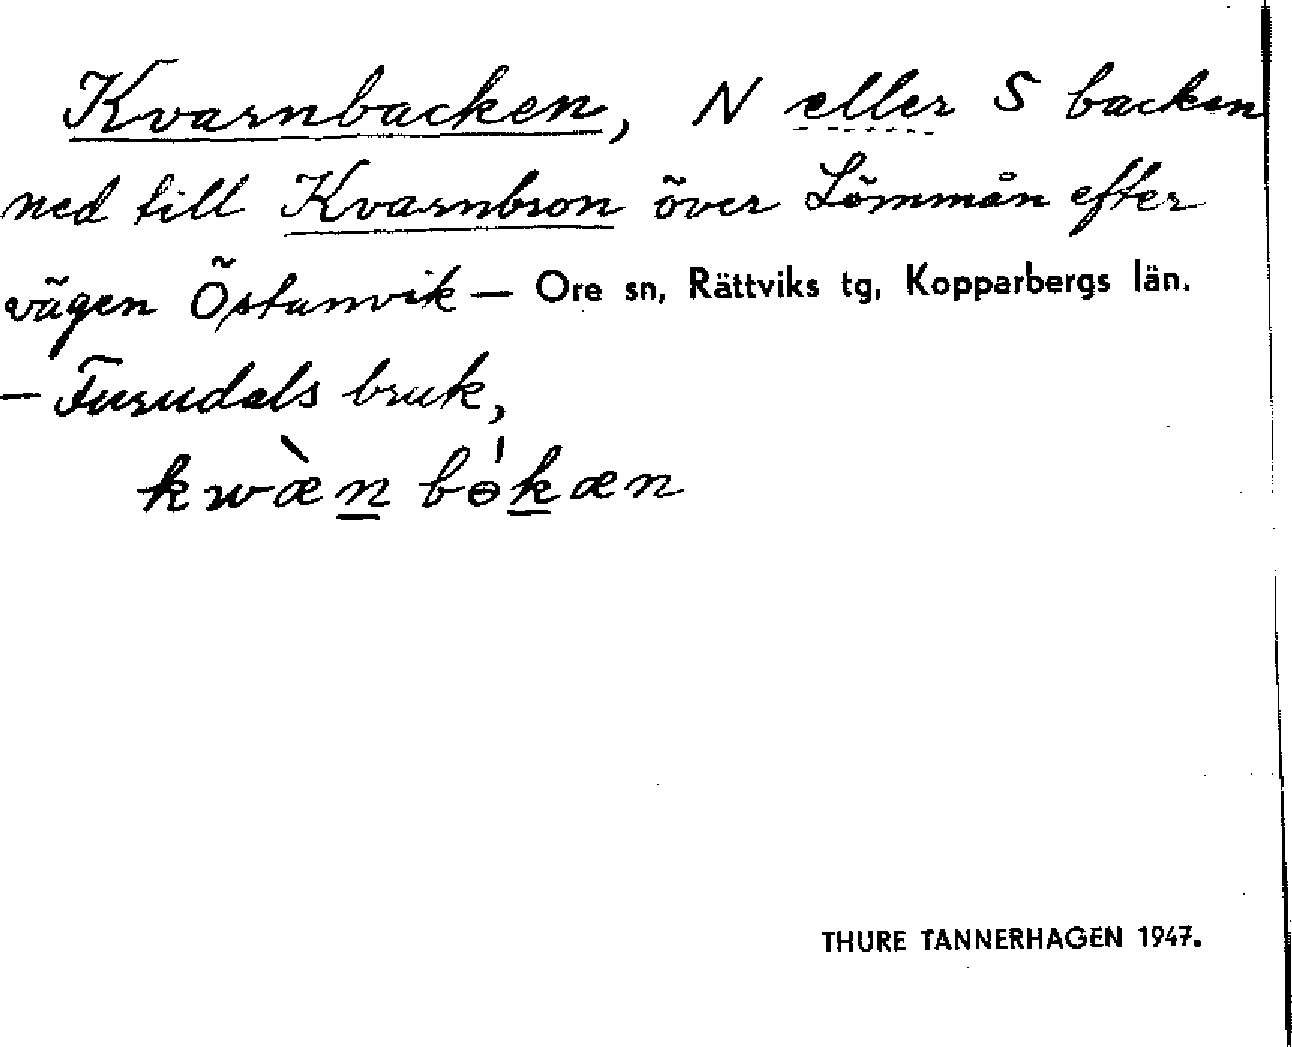 Kvarnbacken, N eller S backen
ned till Kvarnbron över Lömmån efter
vägen Östanvik — Ore sn, Rättviks tg, Kopparbergs län.
— Furudals bruk,
kwæ̀n bɵ́kæn
THURE TANNERHAGEN 1947.